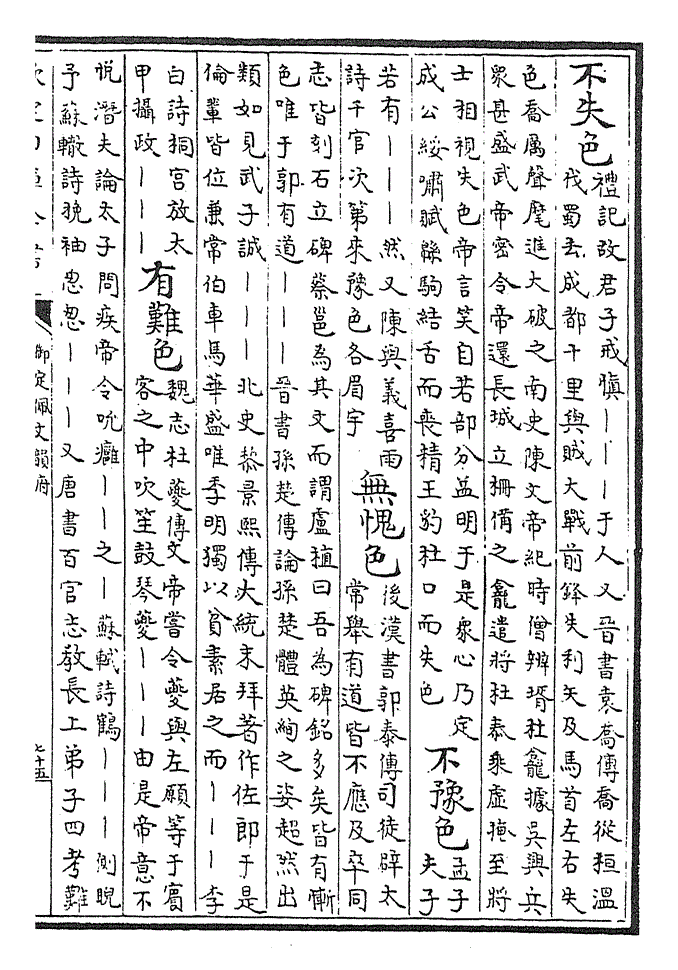 不失色 禮記故君子戒慎｜｜｜于人又晉書袁喬傳喬從桓溫
伐蜀去成都十里與賊大戰前鋒失利矢及馬首左右失
色喬厲聲麾進大破之南史陳文帝紀時僧辨壻杜龕據吳興兵
衆甚盛武帝密令帝還長城立柵備之龕遣將杜泰乘虛掩至將
士相視失色帝言笑自若部分益明于是衆心乃定
成公綏嘯賦緜駒結舌而喪精王豹杜口而失色
不豫色 孟子
夫子
若有｜｜｜然又陳與義喜雨
詩千官次第來豫色各眉宇
無愧色 後漢書郭泰傳司徒辟太
常舉有道皆不應及卒同
志皆刻石立碑蔡邕為其文而謂盧植曰吾為碑銘多矣皆有慚
色唯于郭有道｜｜｜晉書孫楚傳論孫楚體英絢之姿超然出
類如見武子誠｜｜｜北史黎景熙傳大統末拜著作佐郎于是
倫輩皆位兼常伯車馬華盛唯季明獨以貧素居之而｜｜｜李
白詩桐宮放太
甲攝政｜｜｜
有難色 魏志杜夔傳文帝嘗令夔與左願等于賓
客之中吹笙鼓琴夔｜｜｜由是帝意不
悅潛夫論太子問疾帝令吮癰｜｜之｜蘇軾詩鶴｜｜｜｜側睨
予蘇轍詩挽袖怱怱｜｜｜又唐書百官志教長上弟子四考難
御定佩文韻府
七十五